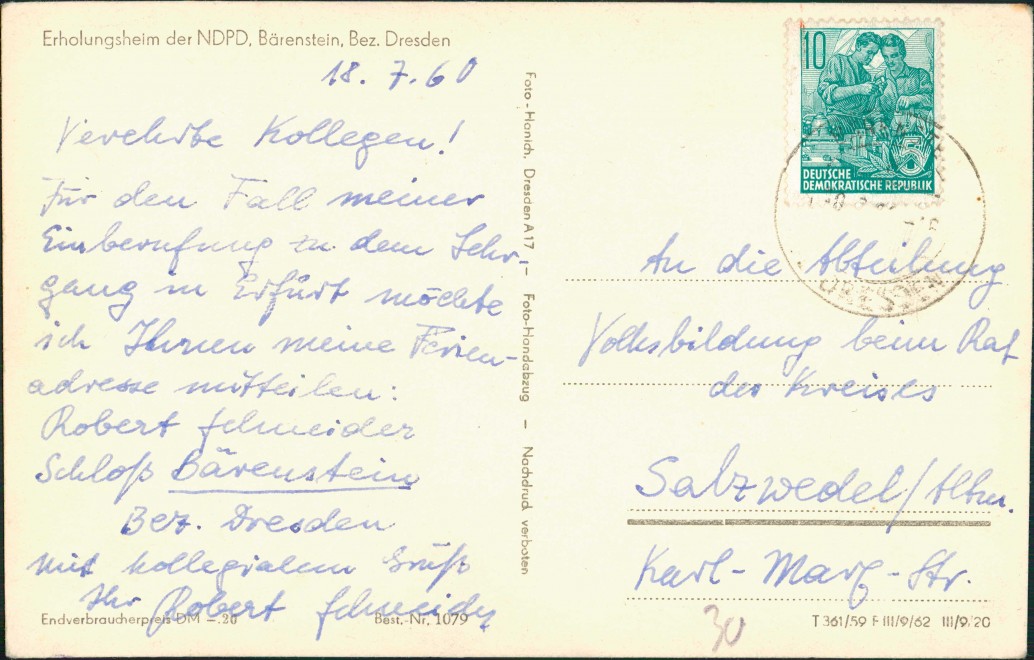 Erholungsheim der NDPD, Bärenstein, Bez. Dresden
18. 7. 60
Verehrte Kollegen!
Für den Fall meiner
Einberufung zu dem Lehr-
gang in Erfurt möchte
ich Ihnen meine Ferien-
adresse mitteilen:
Robert Schneider
Schloß Bärenstein
Bez. Dresden
Mit kollegialem Gruß
Ihr Robert Schneider
Endverbraucherpreis DM –.20
Best.-Nr. 1079
Foto-Hanich, Dresden A 17 – Foto-Handabzug – Nachdruck verboten
10
5
DEUTSCHE
DEMOKRATISCHE REPUBLIK
DRESDEN
An die Abteilung
Volksbildung beim Rat
des Kreises
Salzwedel/Altm.
Karl-Marx-Str.
30
T 361/59 F III/9/62 III/9/20